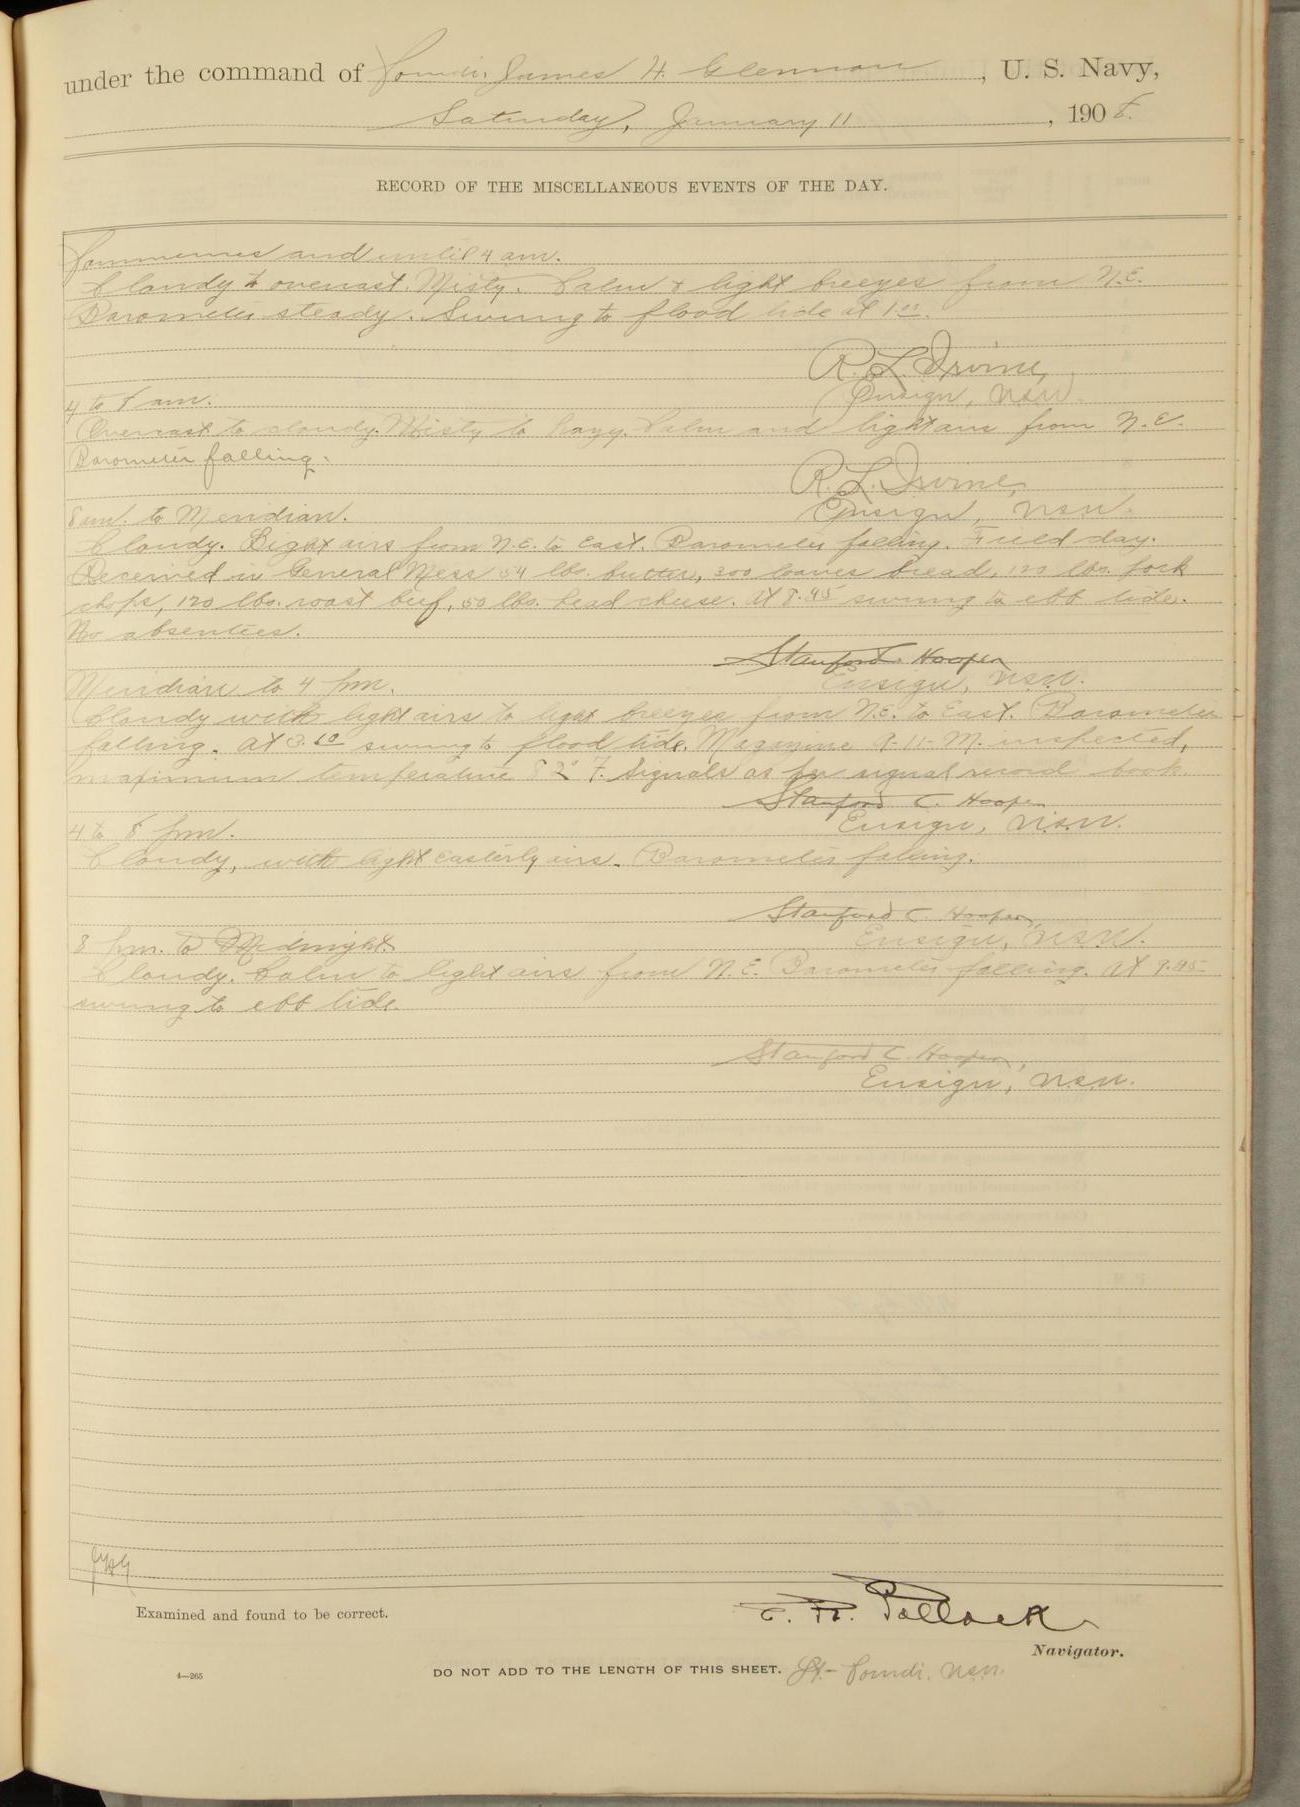 under the command of Comdr. James H. Glennon, U. S. Navy,
Saturday, January 11, 1908.
RECORD OF THE MISCELLANEOUS EVENTS OF THE DAY.
Commences and until 4 am.
Cloudy to overcast. Misty. Calm & light breezes from N.E.
Barometer steady. Swung to flood tide at 1.
R. L. Irvine,
Ensign, USN.
4 to 8 am.
Overcast to cloudy. Misty to hazy. Calm and light airs from N.E.
Barometer falling.
R. L. Irvine,
Ensign, USN.
8 am. to Meridian.
Cloudy. Light airs from N.E. to East. Barometer falling. Field day.
Received in General Mess 54 lbs. butter, 300 loaves bread, 120 lbs. pork
chops, 120 lbs. roast beef, 50 lbs. head cheese. At 8.45 swung to ebb tide.
No absentees.
Stanford C. Hooper
Ensign, USN.
Meridian to 4 pm.
Cloudy with light airs to light breezes from N.E. to East. Barometer
falling. At 3.10 swung to flood tide. Magazine A-11-M. inspected,
maximum temperature 82° F. Signals as per signal record book.
Stanford C. Hooper
Ensign, USN.
4 to 8 pm.
Cloudy, with light easterly airs. Barometer falling.
Stanford C. Hooper,
Ensign, USN.
8 pm. to Midnight.
Cloudy. Calm to light airs from N.E. Barometer falling. At 9.45
swung to ebb tide.
Stanford C. Hooper,
Ensign, USN.
JHG
Examined and found to be correct.
E. H. Pollock
Navigator.
4—265
DO NOT ADD TO THE LENGTH OF THIS SHEET.
Lt-Comdr. USN.